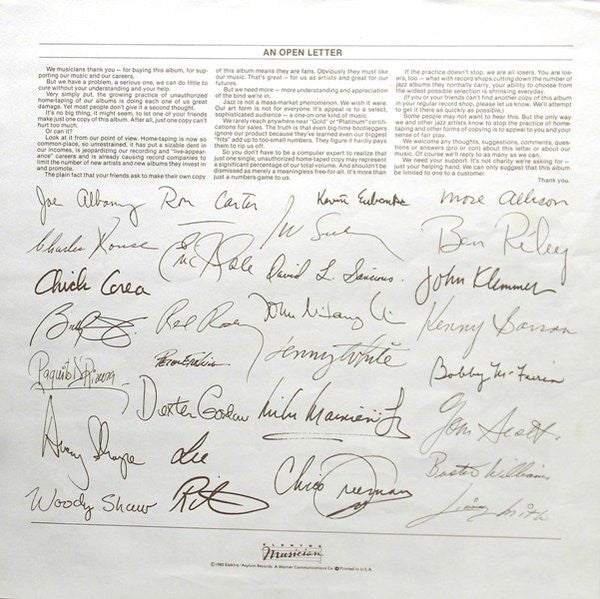 AN OPEN LETTER
We musicians thank you — for buying this album, for sup-
porting our music and our careers.
But we have a problem, a serious one, we can do little to
cure without your understanding and your help.
Very simply put, the growing practice of unauthorized
home-taping of our albums is doing each one of us great
damage. Yet most people don't give it a second thought.
It's no big thing, it might seem, to let one of your friends
make just one copy of this album. After all, just one copy can't
hurt too much.
Or can it?
Look at it from our point of view. Home-taping is now so
common-place, so unrestrained, it has put a sizable dent in
our incomes, is jeopardizing our recording and "live-appear-
ance" careers and is already causing record companies to
limit the number of new artists and new albums they invest in
and introduce.
The plain fact that your friends ask to make their own copy
of this album means they are fans. Obviously they must like
our music. That's great — for us as artists and great for our
futures.
But we need more — more understanding and appreciation
of the bind we're in.
Jazz is not a mass-market phenomenon. We wish it were.
Our art form is not for everyone. It's appeal is to a select,
sophisticated audience — a one-on-one kind of music.
We rarely reach anywhere near "Gold" or "Platinum" certifi-
cations for sales. The truth is that even big-time bootleggers
ignore our product because they've learned even our biggest
"hits" add up to too-small numbers. They figure it hardly pays
them to rip us off.
So you don't have to be a computer expert to realize that
just one single, unauthorized home-taped copy may represent
a significant percentage of our total volume. And shouldn't be
dismissed as merely a meaningless free-for-all. It's more than
just a numbers game to us.
If the practice doesn't stop, we are all losers. You are los-
ers, too, — what with record shops cutting down the number of
jazz albums they normally carry, your ability to choose from
the widest possible selection is shrinking everyday.
(If you or your friends can't find another copy of this album
in your regular record shop, please let us know. We'll attempt
to get it there as quickly as possible.)
Some people may not want to hear this. But the only way
we and other jazz artists know to stop the practice of home-
taping and other forms of copying is to appeal to you and your
sense of fair play.
We welcome any thoughts, suggestions, comments, ques-
tions or answers (pro or con) about this letter or about our
music. Of course we'll reply to as many as we can.
We need your support. It's not charity we're asking for —
just your helping hand. We can only suggest that this album
be limited to one to a customer.
Thank you.
Joe Albany Ron Carter Kevin Eubanks Mose Allison
Charlie Rouse Eric Gale David L. Sancious Ben Riley
Chick Corea John Klemmer
Red Rodney Kenny Barron
Paquito D'Rivera Lenny White Bobby McFerrin
Dexter Gordon Mike Mainieri Jr Tom Scott
Avery Sharpe Lee Buster Williams
Woody Shaw Rit Chico Freeman Jimmy Smith
ELEKTRA
Musician
© 1983 Elektra/Asylum Records. A Warner Communications Co. Printed in U.S.A.